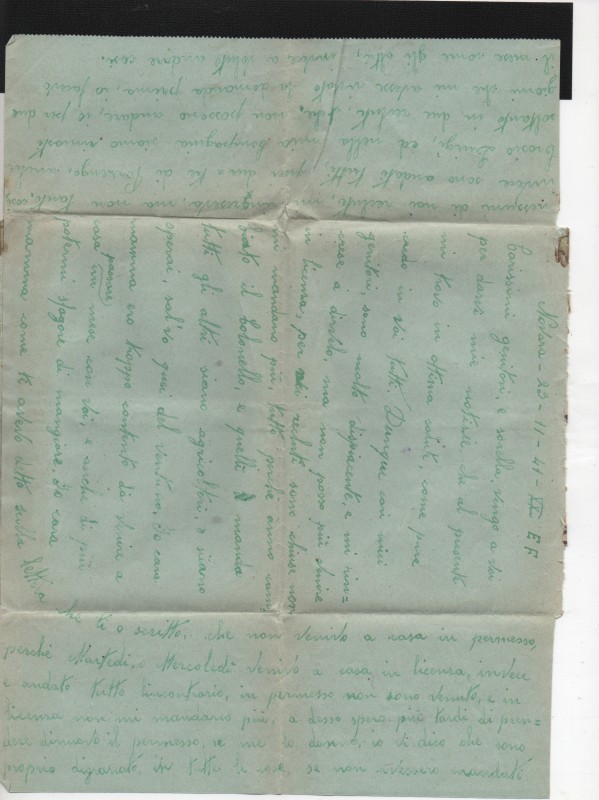 Novara - 23 - 11 - 41 - XX E F
Carissimi genitori, e sorella, vengo a
per darvi mie notizie che al presente
mi trovo in ottima salute, come pure
credo in voi tutti. Dunque cari miei
genitori, sono molto dispiacente, e mi rin=
cresce a dirvelo, ma non posso più venire
in licenza, per noi reclute sono chiuse non
mi mandano più, tutto perché anno cam=
biato il Colonello, e quelli manda
tutti gli altri siano agricoltori, o siano
operai, salvo quei del ventuno, Io cara
mamma ero troppo contento da venire a
casa passare un mese con voi, e anche di più
potermi sfogare di mangiare. Io cara
mamma come ti avevo detto sulla lettera
che ti o scritto, che non venivo a casa in permesso,
perché Martedì, o Mercoledì venivo a casa in licenza, invece
è andato tutto lincontrario, in permesso non sono venuto, e in
licenza non mi mandano più, a desso spero più tardi di pren=
dere dinuovo il permesso, se me lo danno, io vi dico che sono
proprio disgraziato, in tutte le cose, se non avessero mandato
nessuni di noi reclute, mi ma non tanto, ma
invece sono andati tutti, quei due di
Brosio Luigi, ed nella mia Compagnia siamo rimasti
soltanto in due reclute, che non possono andare, io per due
giorni che mi avessi mandato la domanda prima, io facevo
il mese come gli altri, invece a voluto andare così.